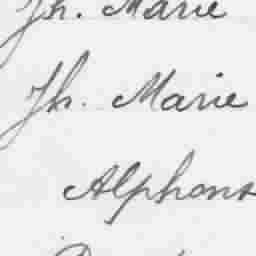 Jh. Marie
Jh. Marie
Alphons